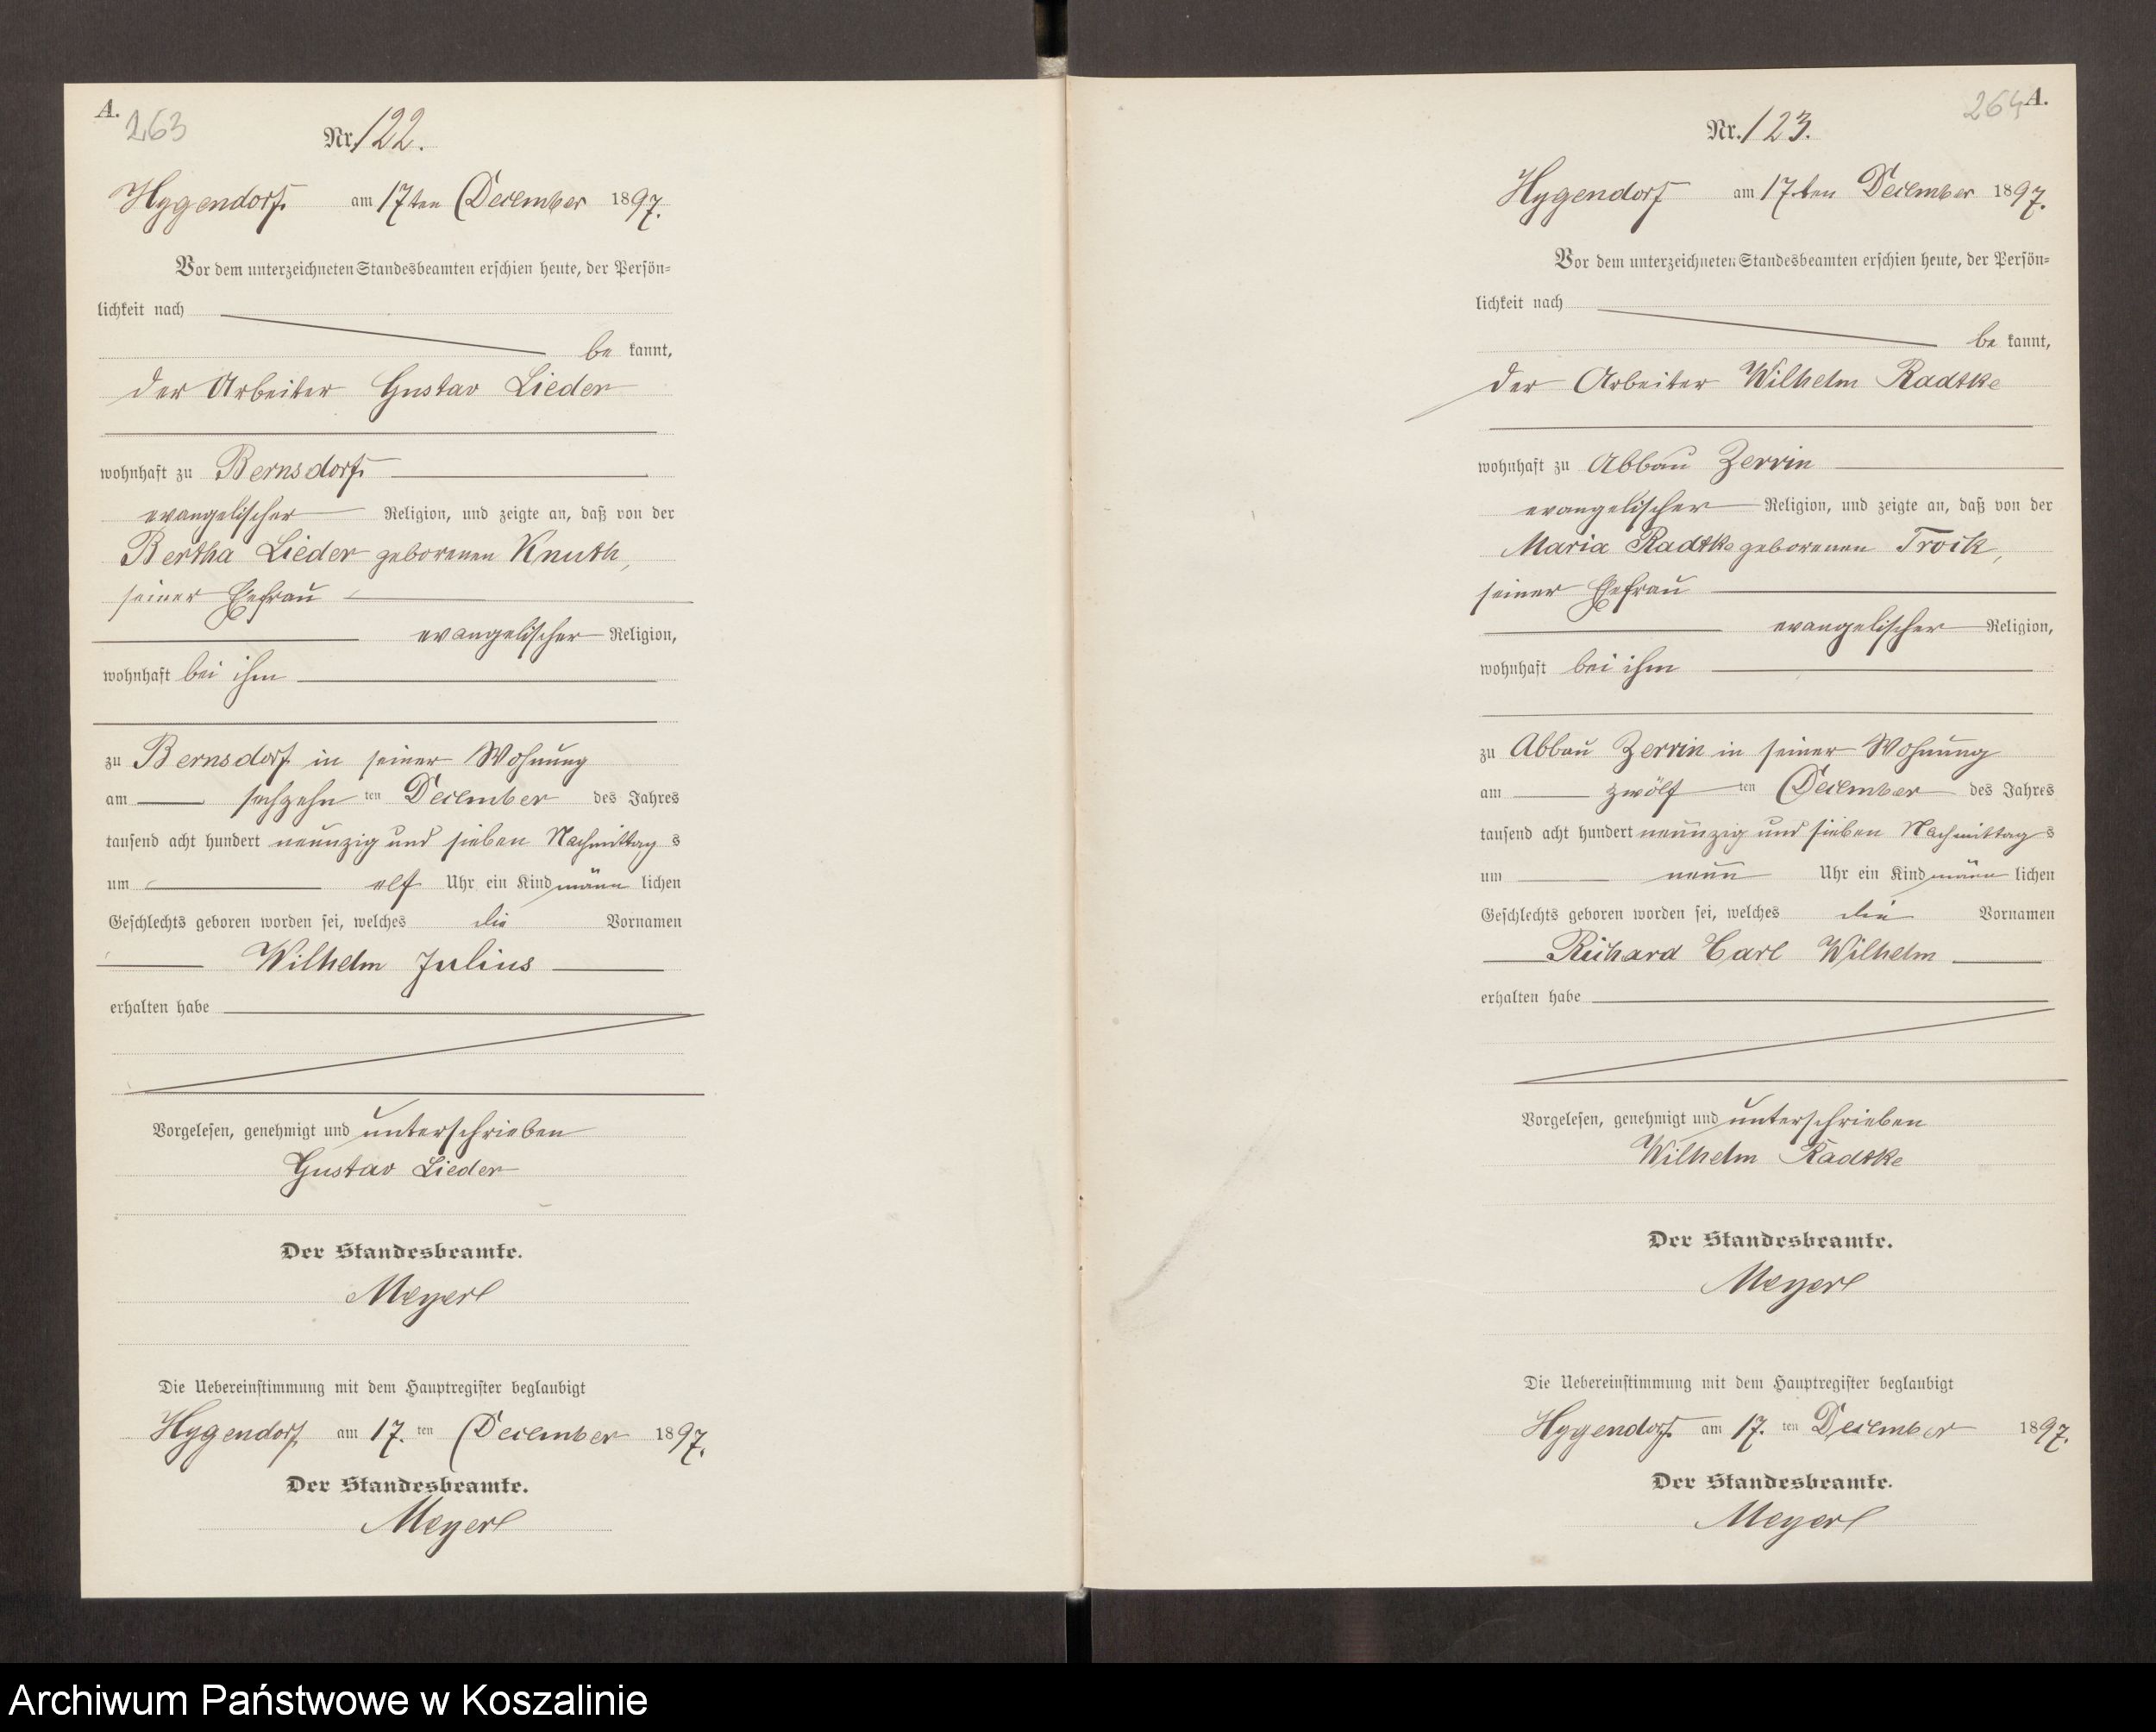 A.
263
Nr. 122.
Hygendorf am 17ten December 1897.
Vor dem unterzeichneten Standesbeamten erschien heute, der Persön=
lichkeit nach
be kannt,
der Arbeiter Gustav Lieder
wohnhaft zu Bernsdorf
evangelischer Religion, und zeigte an, daß von der
Bertha Lieder geborenen Knuth,
seiner Ehefrau
evangelischer Religion,
wohnhaft bei ihm
zu Bernsdorf in seiner Wohnung
am sechzehn ten December des Jahres
tausend acht hundert neunzig und sieben Nachmittag s
um elf Uhr ein Kind männ lichen
Geschlechts geboren worden sei, welches die Vornamen
Wilhelm Julius
erhalten habe
Vorgelesen, genehmigt und unterschrieben
Gustav Lieder
Der Standesbeamte.
Meyerl
Die Uebereinstimmung mit dem Hauptregister beglaubigt
Hygendorf am 17. ten December 1897.
Der Standesbeamte.
Meyerl
264 A.
Nr. 123.
Hygendorf am 17ten December 1897.
Vor dem unterzeichneten Standesbeamten erschien heute, der Persön=
lichkeit nach
be kannt,
der Arbeiter Wilhelm Radtke
wohnhaft zu Abbau Zerrin
evangelischer Religion, und zeigte an, daß von der
Maria Radtke geborenen Troik,
seiner Ehefrau
evangelischer Religion,
wohnhaft bei ihm
zu Abbau Zerrin in seiner Wohnung
am zwölf ten December des Jahres
tausend acht hundert neunzig und sieben Nachmittag s
um neun Uhr ein Kind männ lichen
Geschlechts geboren worden sei, welches die Vornamen
Richard Carl Wilhelm
erhalten habe
Vorgelesen, genehmigt und unterschrieben
Wilhelm Radtke
Der Standesbeamte.
Meyerl
Die Uebereinstimmung mit dem Hauptregister beglaubigt
Hygendorf am 17. ten December 1897.
Der Standesbeamte.
Meyerl
Archiwum Państwowe w Koszalinie